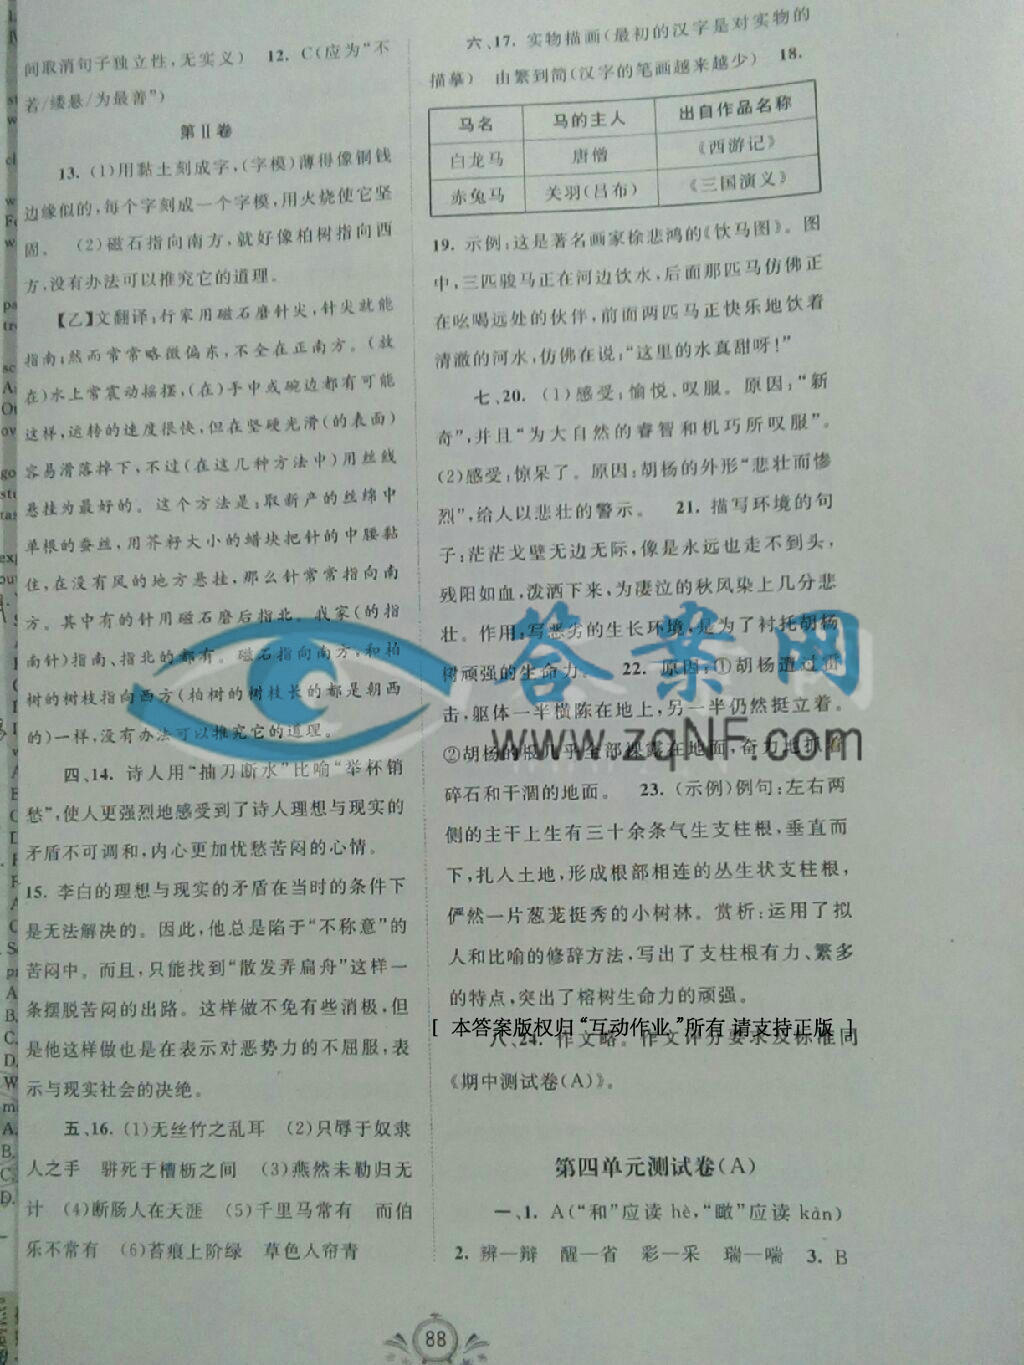 间取消句子独立性,无实义) 12. C(应为“不
若/缕悬/为最善”)
第Ⅱ卷
13. (1)用黏土刻成字,(字模)薄得像铜钱
边缘似的,每个字刻成一个字模,用火烧使它坚
固。 (2)磁石指向南方,就好像柏树指向西
方,没有办法可以推究它的道理。
【乙】文翻译:行家用磁石磨针尖,针尖就能
指南;然而常常略微偏东,不全在正南方。(放
在)水上常震动摇摆,(在)手中或碗边都有可能
这样,运转的速度很快,但在坚硬光滑(的表面)
容易滑落掉下,不过(在这几种方法中)用丝线
悬挂为最好的。这个方法是:取新产的丝绵中
单根的蚕丝,用芥籽大小的蜡块把针的中腰黏
住,在没有风的地方悬挂,那么针常常指向南
方。其中有的针用磁石磨后指北。我家(的指
南针)指南、指北的都有。磁石指向南方,和柏
树的树枝指向西方(柏树的树枝长的都是朝西
的)一样,没有办法可以推究它的道理。
四、14. 诗人用“抽刀断水”比喻“举杯销
愁”,使人更强烈地感受到了诗人理想与现实的
矛盾不可调和,内心更加忧愁苦闷的心情。
15. 李白的理想与现实的矛盾在当时的条件下
是无法解决的。因此,他总是陷于“不称意”的
苦闷中。而且,只能找到“散发弄扁舟”这样一
条摆脱苦闷的出路。这样做不免有些消极,但
是他这样做也是在表示对恶势力的不屈服,表
示与现实社会的决绝。
五、16. (1)无丝竹之乱耳 (2)只辱于奴隶
人之手 骈死于槽枥之间 (3)燕然未勒归无
计 (4)断肠人在天涯 (5)千里马常有 而伯
乐不常有 (6)苔痕上阶绿 草色入帘青
六、17. 实物描画(最初的汉字是对实物的
描摹) 由繁到简(汉字的笔画越来越少) 18.
马名 马的主人 出自作品名称
白龙马 唐僧 《西游记》
赤兔马 关羽(吕布) 《三国演义》
19. 示例:这是著名画家徐悲鸿的《饮马图》。图
中,三匹骏马正在河边饮水,后面那匹马仿佛正
在吆喝远处的伙伴,前面两匹马正快乐地饮着
清澈的河水,仿佛在说:“这里的水真甜呀!”
七、20. (1)感受:愉悦、叹服。原因:“新
奇”,并且“为大自然的睿智和机巧所叹服”。
(2)感受:惊呆了。原因:胡杨的外形“悲壮而惨
烈”,给人以悲壮的警示。 21. 描写环境的句
子:茫茫戈壁无边无际,像是永远也走不到头,
残阳如血,泼洒下来,为凄泣的秋风染上几分悲
壮。作用:写恶劣的生长环境,是为了衬托胡杨
树顽强的生命力。 22. 原因:①胡杨遭过
击,躯体一半横陈在地上,另一半仍然挺立着。
②胡杨的根几乎全部裸露在地面,奋力地抓着
碎石和干涸的地面。 23. (示例)例句:左右两
侧的主干上生有三十余条气生支柱根,垂直而
下,扎人土地,形成根部相连的丛生状支柱根,
俨然一片葱茏挺秀的小树林。赏析:运用了拟
人和比喻的修辞方法,写出了支柱根有力、繁多
的特点,突出了榕树生命力的顽强。
[ 本答案版权归“互动作业”所有 请支持正版 ]
八、24. 作文略。作文评分要求及标准同
《期中测试卷(A)》。
第四单元测试卷(A)
一、1. A(“和”应读 hè,“瞰”应读 kàn)
2. 辨—辩 醒—省 彩—采 瑞—喘 3. B
88
答案网
www.zqNF.com